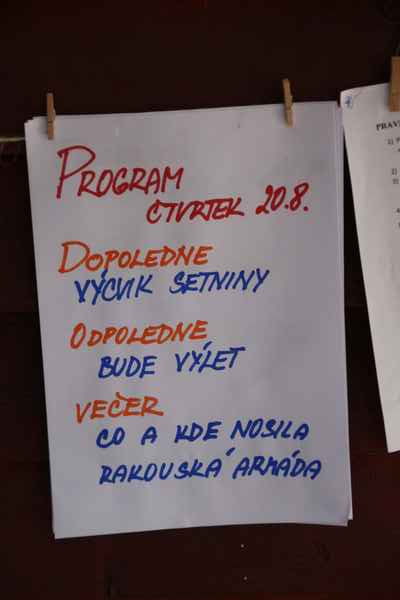 PROGRAM
ČTVRTEK 20.8.
DOPOLEDNE
VÝCVIK SETNINY
ODPOLEDNE
BUDE VÝLET
VEČER
CO A KDE NOSILA
RAKOUSKÁ ARMÁDA
PRAVI
1) P
2)
3)